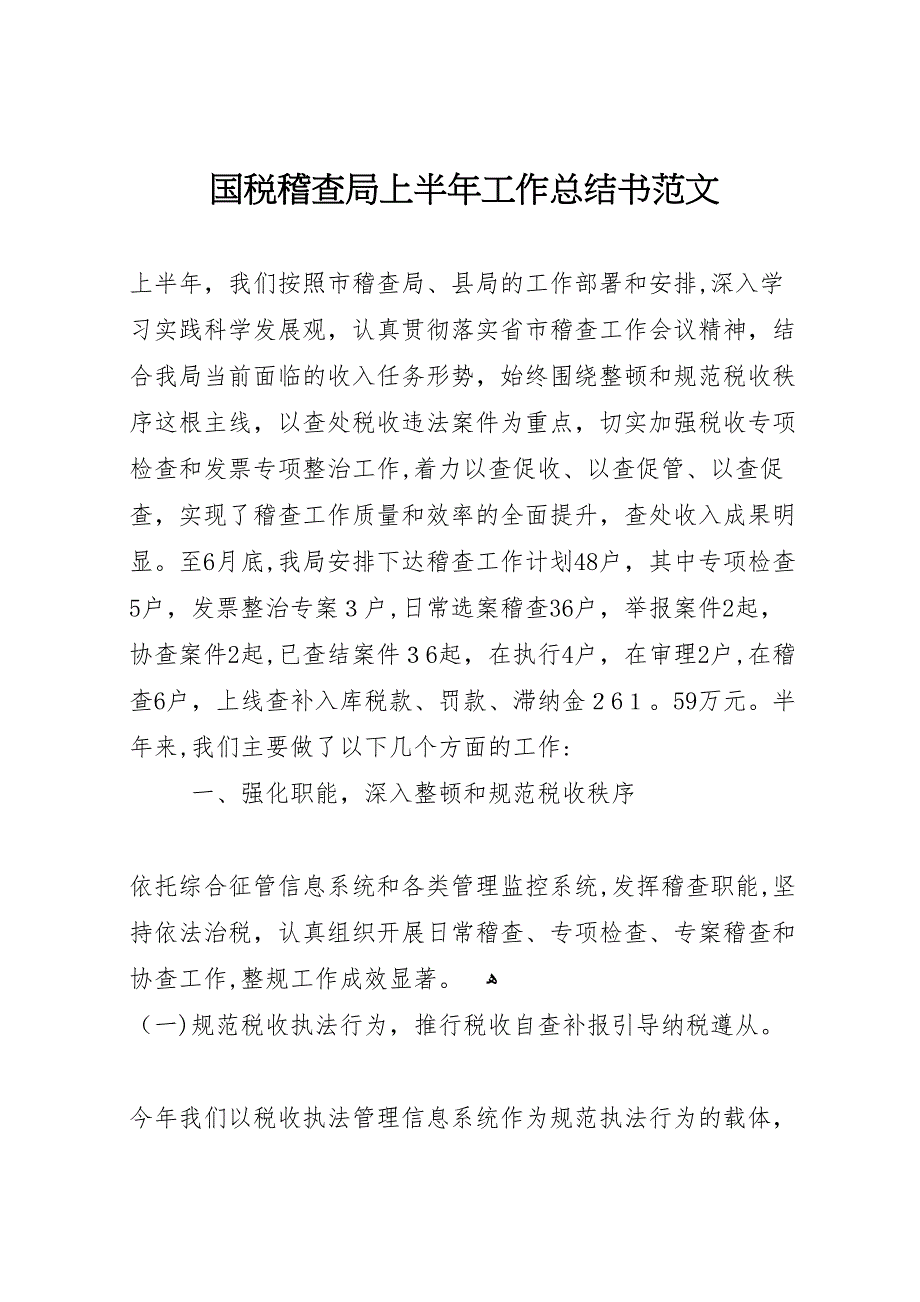 国税稽查局上半年工作总结书范文
上半年，我们按照市稽查局、县局的工作部署和安排,深入学
习实践科学发展观，认真贯彻落实省市稽查工作会议精神，结
合我局当前面临的收入任务形势，始终围绕整顿和规范税收秩
序这根主线，以查处税收违法案件为重点，切实加强税收专项
检查和发票专项整治工作,着力以查促收、以查促管、以查促
查，实现了稽查工作质量和效率的全面提升，查处收入成果明
显。至6月底,我局安排下达稽查工作计划48户，其中专项检查
5户，发票整治专案３户,日常选案稽查36户，举报案件2起，
协查案件2起,已查结案件３6起，在执行4户，在审理2户,在稽
查6户，上线查补入库税款、罚款、滞纳金２６１。59万元。半
年来,我们主要做了以下几个方面的工作:
一、强化职能，深入整顿和规范税收秩序
依托综合征管信息系统和各类管理监控系统,发挥稽查职能,坚
持依法治税，认真组织开展日常稽查、专项检查、专案稽查和
协查工作,整规工作成效显著。 ﻫ
（一)规范税收执法行为，推行税收自查补报引导纳税遵从。
今年我们以税收执法管理信息系统作为规范执法行为的载体，